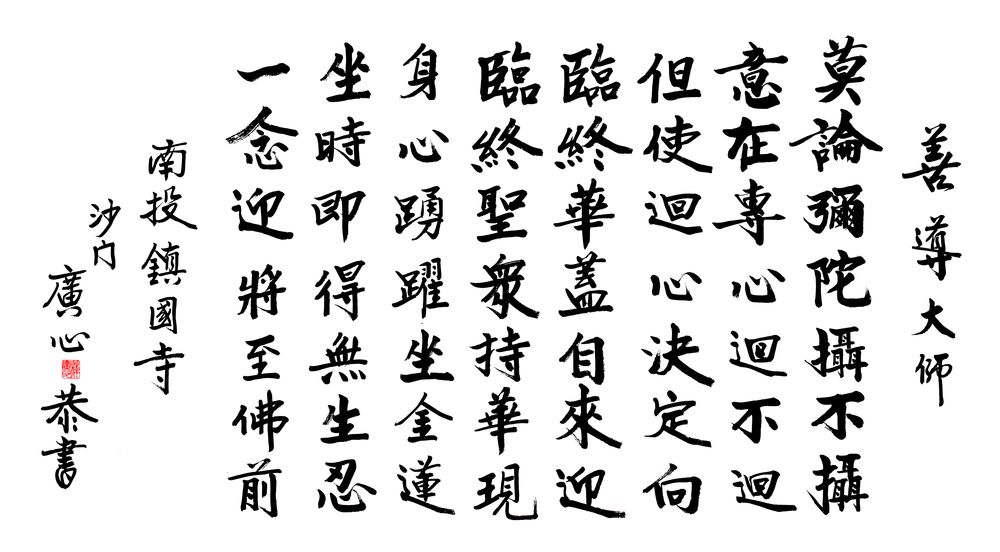 善導大師
莫論彌陀攝不攝
意在專心迴不迴
但使迴心決定向
臨終華蓋自來迎
臨終聖衆持華現
身心踴躍坐金蓮
坐時即得無生忍
一念迎將至佛前
南投鎮國寺
沙门
廣心恭書